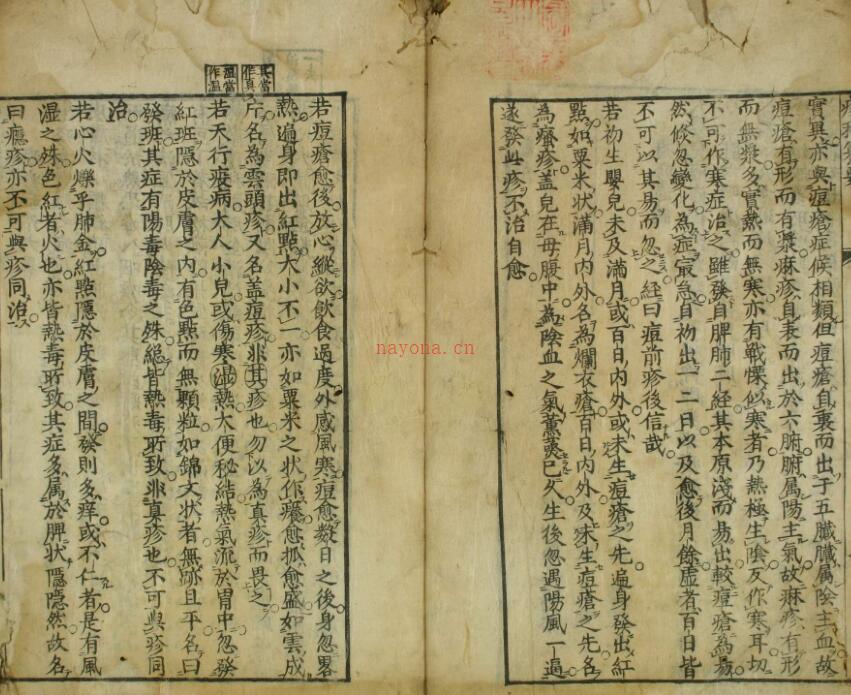 實異亦與痘瘡症候相類但痘瘡自裏而出于五臟臟属陰主血故
痘瘡有形而有漿麻疹自表而出於六腑腑属陽主氣故麻疹有形
而無漿多實熱而無寒亦有戰慄似寒者乃熱極生陰反作寒耳切
不可作寒症治之雖發自脾肺二経其本原淺而易出較痘瘡為易
然倏忽變化為症冣急自初出一二日以及愈後月餘虛者百日皆
不可以其易而忽之経曰痘前疹後信哉
若初生嬰兒未及滿月或百日内外或未生痘瘡之先遍身發出紅
點如粟米状滿月内外名為爛衣瘡百日内外及未生痘瘡之先名
為瘙疹盖兒在母腹中為陰血之氣薫蒸已久生後忽遇陽風一逼
遂發此疹不治自愈
其當作真
濕當作温
若痘瘡愈後放心縱欲飲食過度外感風寒痘愈数日之後身忽畧
熱遍身即出紅點大小不一亦如粟米之状作癢愈抓愈盛如雲成
片名為雲頭疹又名盖痘疹非其疹也勿以為真疹而畏之
若天行疫病大人小兒或傷寒濕熱大便秘結熱氣流於胃中忽發
紅班隱於皮膚之内有色點而無顆粒如錦文状者無跡且平名曰
發班其症有陽毒陰毒之殊總皆熱毒所致非真疹也不可與疹同
治
若心火爍乎肺金紅點隱於皮膚之間發則多痒或不仁者是有風
湿之殊色紅者火也亦皆熱毒所致其症多属於脾状隱隱然故名
曰癮疹亦不可與疹同治
nayona.cn